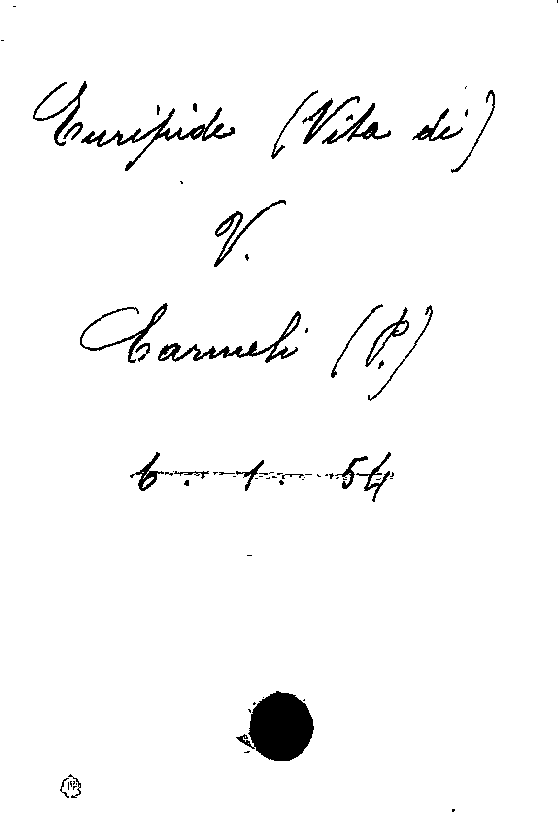 Euripide (Vita di)
V.
Carmeli (P.)
6. 1. 54